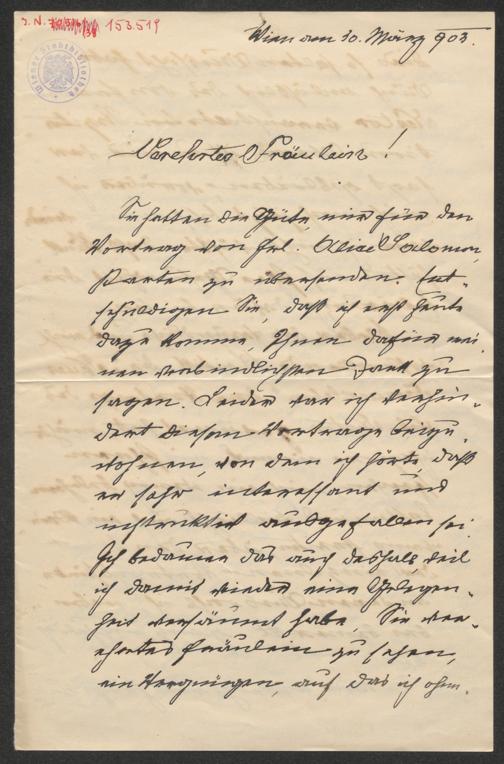 J. N. 153.519
Wiener Stadtbibliothek
Wien am 30. März 903.
Verehrtes Fräulein!
Sie hatten die Güte, mir für den
Vortrag von Frl. Alice Salomon,
Karten zu übersenden. Ent-
schuldigen Sie, daß ich erst heute
dazu komme, Ihnen dafür mei-
nen verbindlichsten Dank zu
sagen. Leider war ich verhin-
dert diesem Vortrage beizu-
wohnen, von dem ich hörte, daß
er sehr interessant und
instruktiv ausgefallen sei.
Ich bedauere das auch deshalb, weil
ich damit wieder eine Gelegen-
heit versäumt habe, Sie ver-
ehrtes Fräulein zu sehen,
ein Vergnügen, auf das ich ohne-